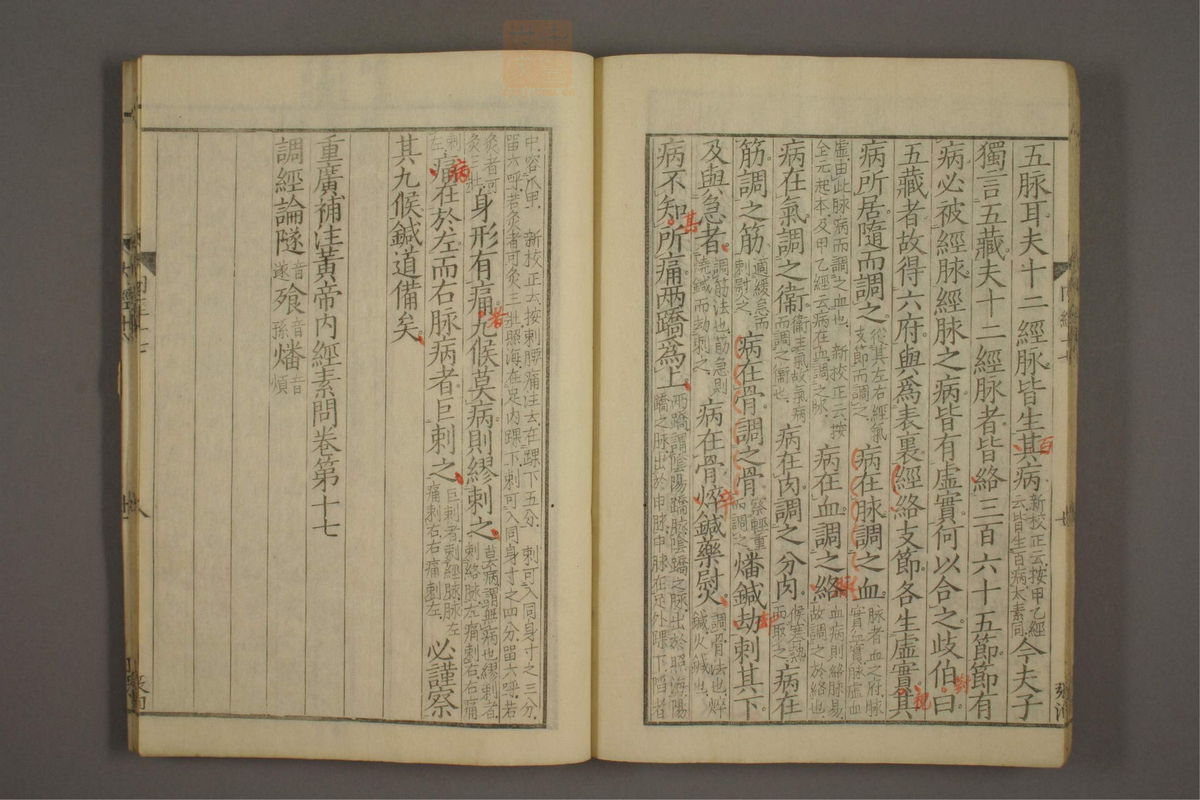 五脉耳夫十二經脉皆生其病新校正云按甲乙經云皆生百病太素同今夫子
獨言五藏夫十二經脉者皆絡三百六十五節節有
病必被經脉經脉之病皆有虛實何以合之歧伯曰
五藏者故得六府與爲表裏經絡支節各生虛實其
病所居隨而調之從其左右經氣支節而調之病在脉調之血脉者血之府脉實血實脉虛
血虛由此脉病而調之血也新校正云按全元起本及甲乙經云病在血調之脉病在血調之絡血病則絡脉易故調之於絡也
病在氣調之衞衞主氣故氣病而調之衞也病在肉調之分肉候寒熱而取之病在
筋調之筋適緩急而刺熨之病在骨調之骨察輕重而調之燔鍼劫刺其下
及與急者調筋法也筋急則燒鍼而劫刺之病在骨焠鍼藥熨調骨法也焠鍼火鍼也
病不知所痛兩蹻爲上兩蹻謂陰陽蹻脉陰蹻之脉出於照海陽蹻之脉出於申脉申脉在足外踝下陷者
中容爪甲新校正云按刺腰痛注云在踝下五分刺可入同身寸之三分留六呼若灸者可灸三壯照海在足內踝下刺可入同身寸之四分留六呼若
灸者可灸三壯身形有痛九候莫病則繆刺之莫病謂無病也繆刺者刺絡脉左痛刺右右痛
刺左痛在於左而右脉病者巨刺之巨刺者刺經脉脉左痛刺右右痛刺左必謹察
其九候鍼道備矣
重廣補注黃帝內經素問卷第十七
調經論隧音遂飱音孫燔音煩
百
對
祝
脉
劫
焠
其
若
病